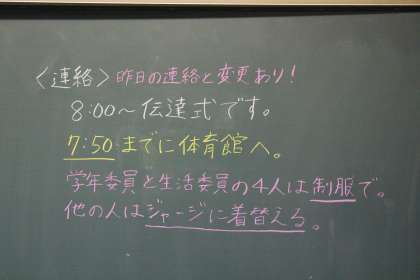 〈連絡〉昨日の連絡と変更あり！
8:00〜伝達式です。
7:50までに体育館へ。
学年委員と生活委員の4人は制服で。
他の人はジャージに着替える。